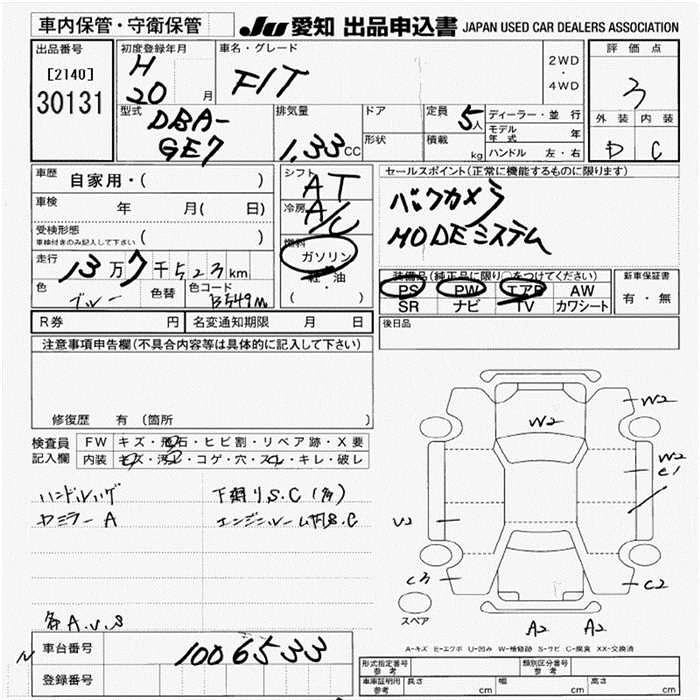 車内保管・守衛保管
JU 愛知 出品申込書 JAPAN USED CAR DEALERS ASSOCIATION
出品番号
[2140]
30131
初度登録年月
H
20 月
車名・グレード
FIT
2WD
・
4WD
評価点
3
外装 内装
D C
型式
DBA-
GE7
排気量
1.33 CC
ドア
形状
定員
5人
積載
kg
ディーラー・並行
モデル年式 年
ハンドル 左・右
車歴
自家用・( )
車検
年 月( 日)
受検形態
車検付きのみ記入して下さい ( )
走行
13万7千523km
色
ブルー
色替
色コード
B549M
シフト
AT
冷房
A/C
燃料
ガソリン
軽・油
( )
セールスポイント(正常に機能するものに限ります)
バックカメラ
MODEシステム
装備品(純正品に限り○をつけてください)
PS PW エアB AW
SR ナビ TV カワシート
新車保証書
有・無
R券 円
名変通知期限 月 日
後日品
注意事項申告欄(不具合内容等は具体的に記入して下さい)
修復歴 有 (箇所 )
検査員記入欄
FW キズ・飛石・ヒビ割・リペア跡・X要
内装 キズ・汚レ・コゲ・穴・スレ・キレ・破レ
ハンドルハゲ
下廻りS.C(多)
ヤミラーA
エンジンルーム内S.C
各A.U.S
W2
W2
W2
C1
U2
C3
C2
A2
A2
スペア
A-キズ E-エクボ U-凹み W-補修跡 S-サビ C-腐食 XX-交換済
車台番号
1006533
登録番号
形式指定番号
参考
類別区分番号
参考
車庫証明用
参考
長さ cm
幅 cm
高さ cm